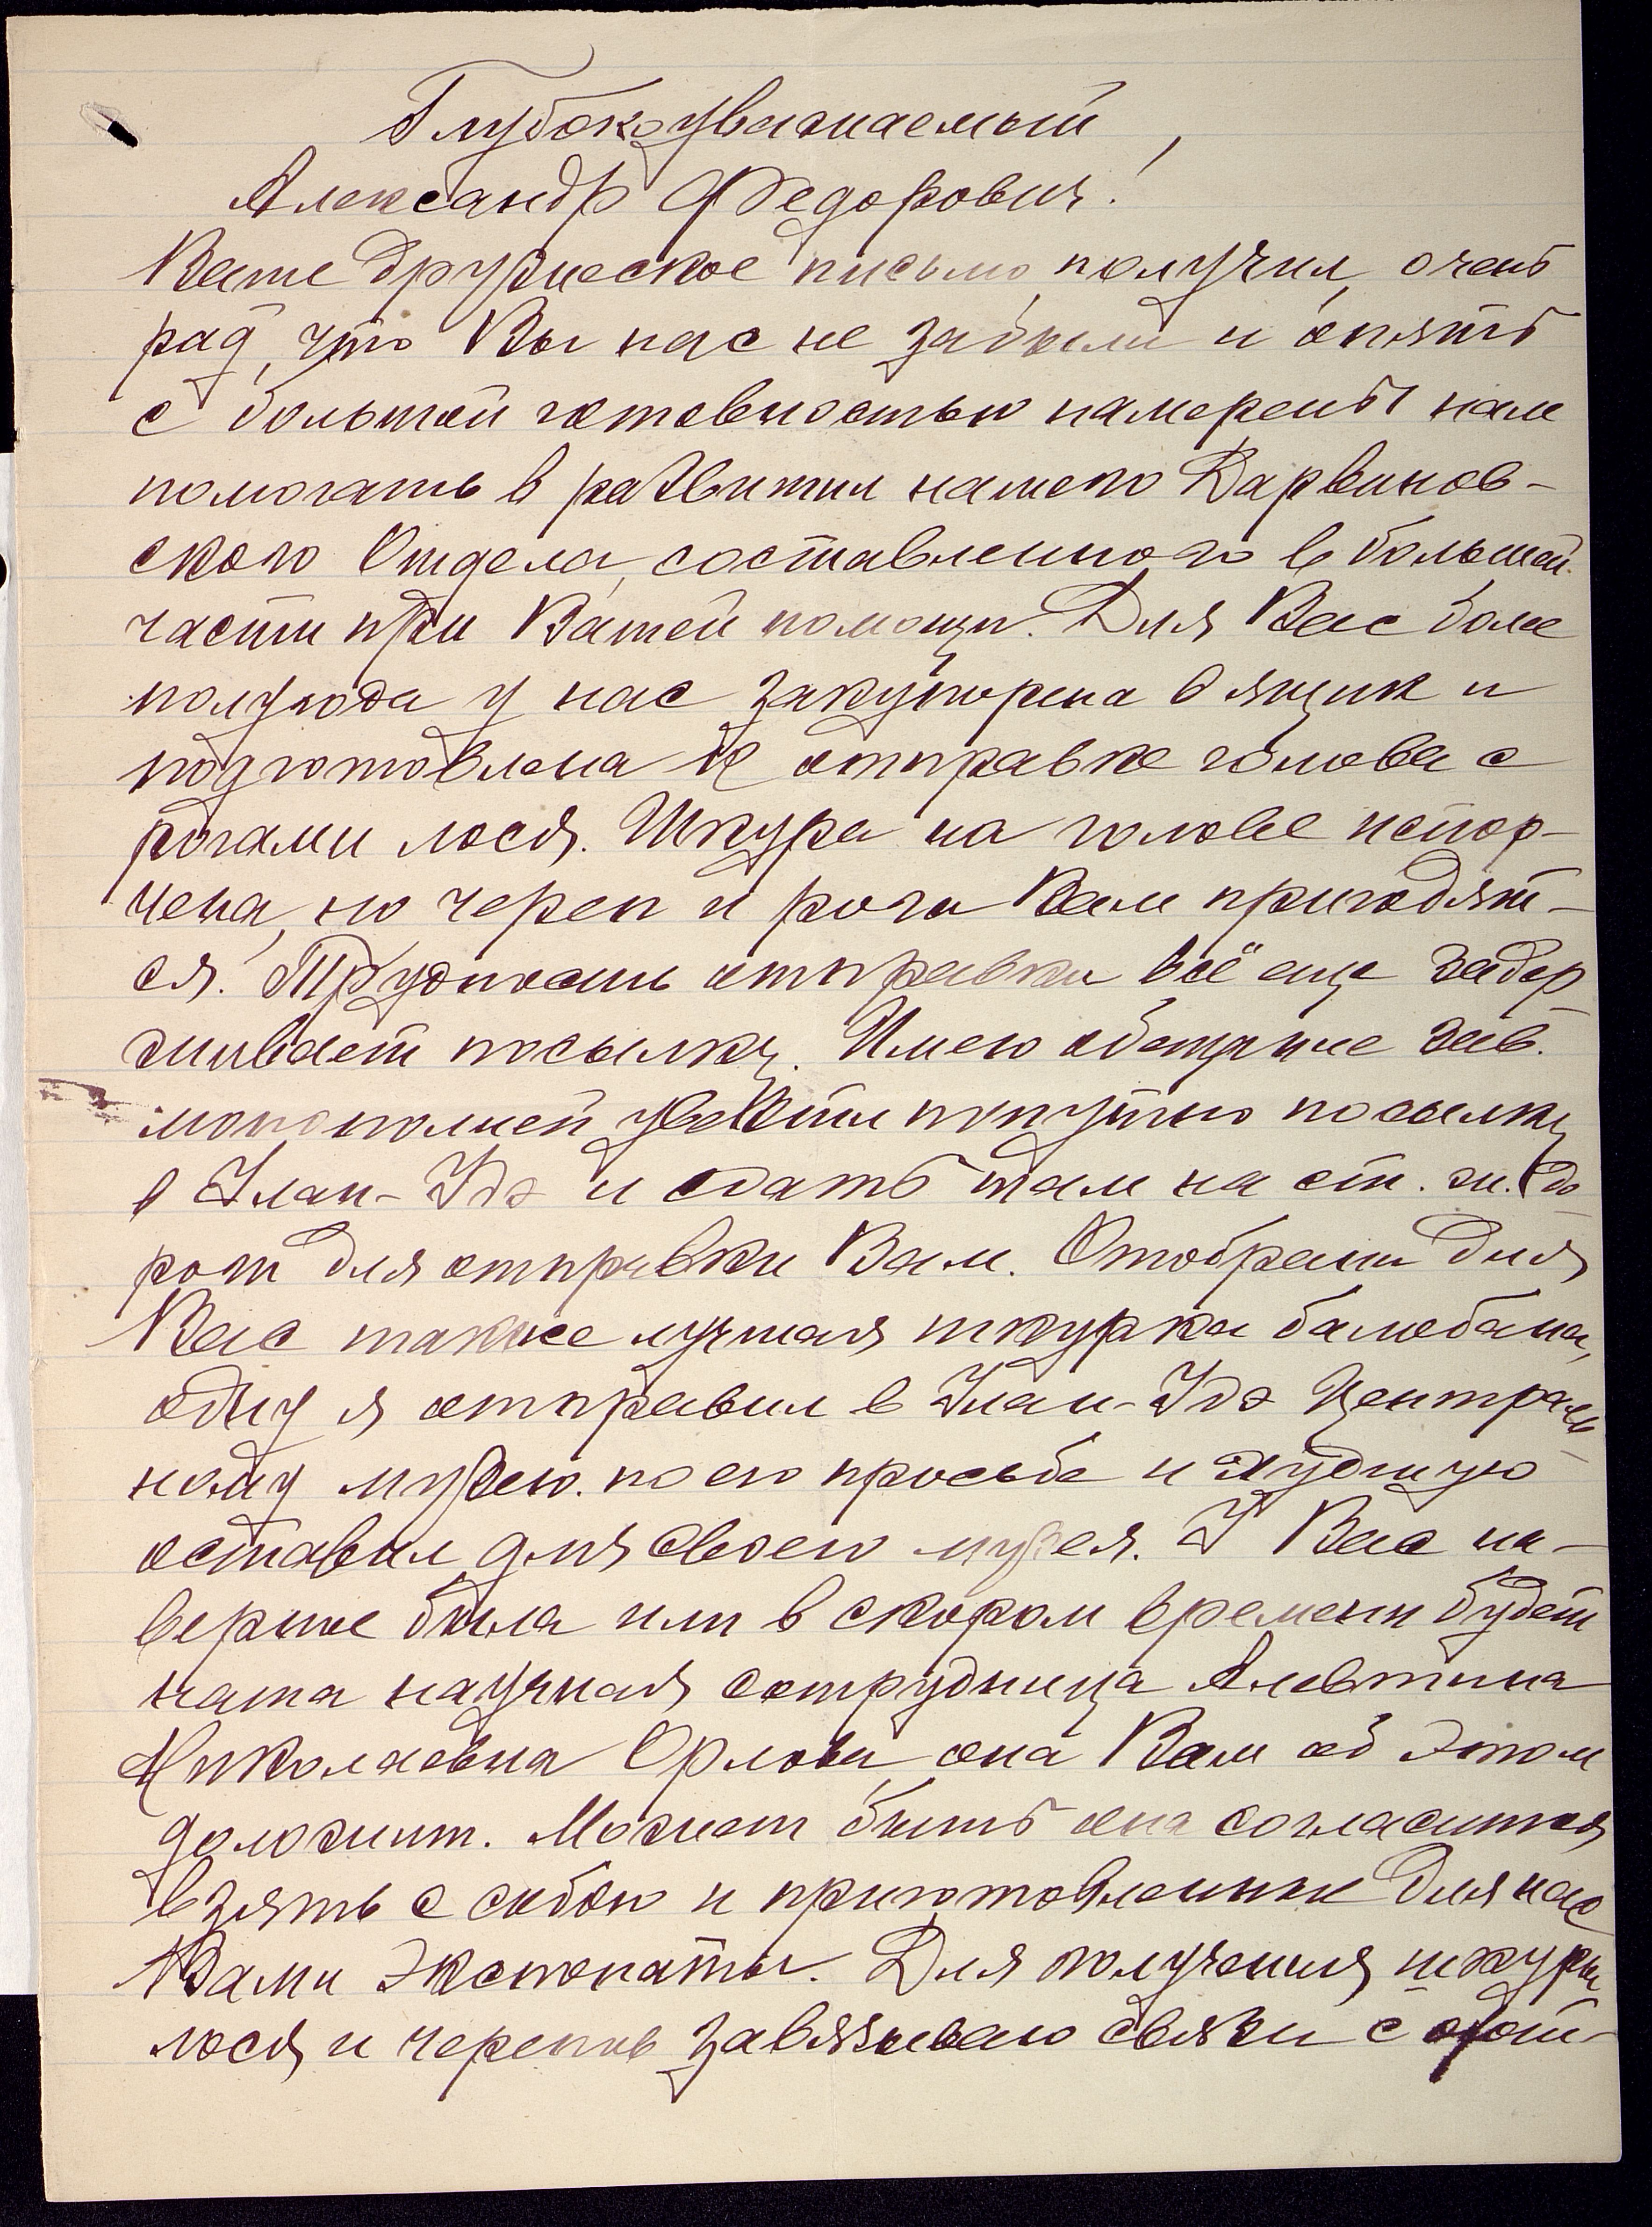 Глубокоуважаемый,
Александр Федорович!
Ваше дружеское письмо получил, очень
рад, что Вы нас не забыли и опять
с большой готовностью намерены нам
помогать в развитии нашего Дарвинов-
ского Отдела, составленного в большей
части при Вашей помощи. Для Вас более
полугода у нас закупорена в ящик и
подготовлена к отправке голова с
рогами лося. Шкура на голове испор-
чена, но череп и рога Вам пригодят-
ся. Трудность отправки всё еще задер
живает посылку. Имею обещание зав.
монополией увезти попутно посылку
в Улан-Удэ и сдать там на ст. ж. до
рог для отправки Вам. Отобрана для
Вас также лучшая шкурка балобана,
одну я отправил в Улан-Удэ Централь
ному музею по его просьбе и худшую
оставил для своего музея. У Вас на-
верное была или в скором времени будет
наша научная сотрудница Алевтина
Николаевна Орлова, она Вам об этом
доложит. Может быть она согласится
взять с собою и приготовленные для нас
Вами экспонаты. Для получения шкуры
лося и черепов завязываю связи с охот-